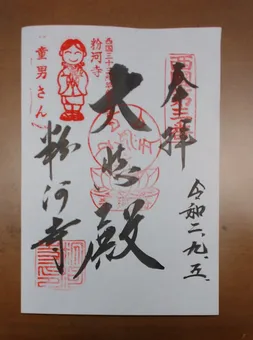 奉拝
令和二、九、五、
大悲殿
粉河寺
西国三十三
粉河寺
童男さん